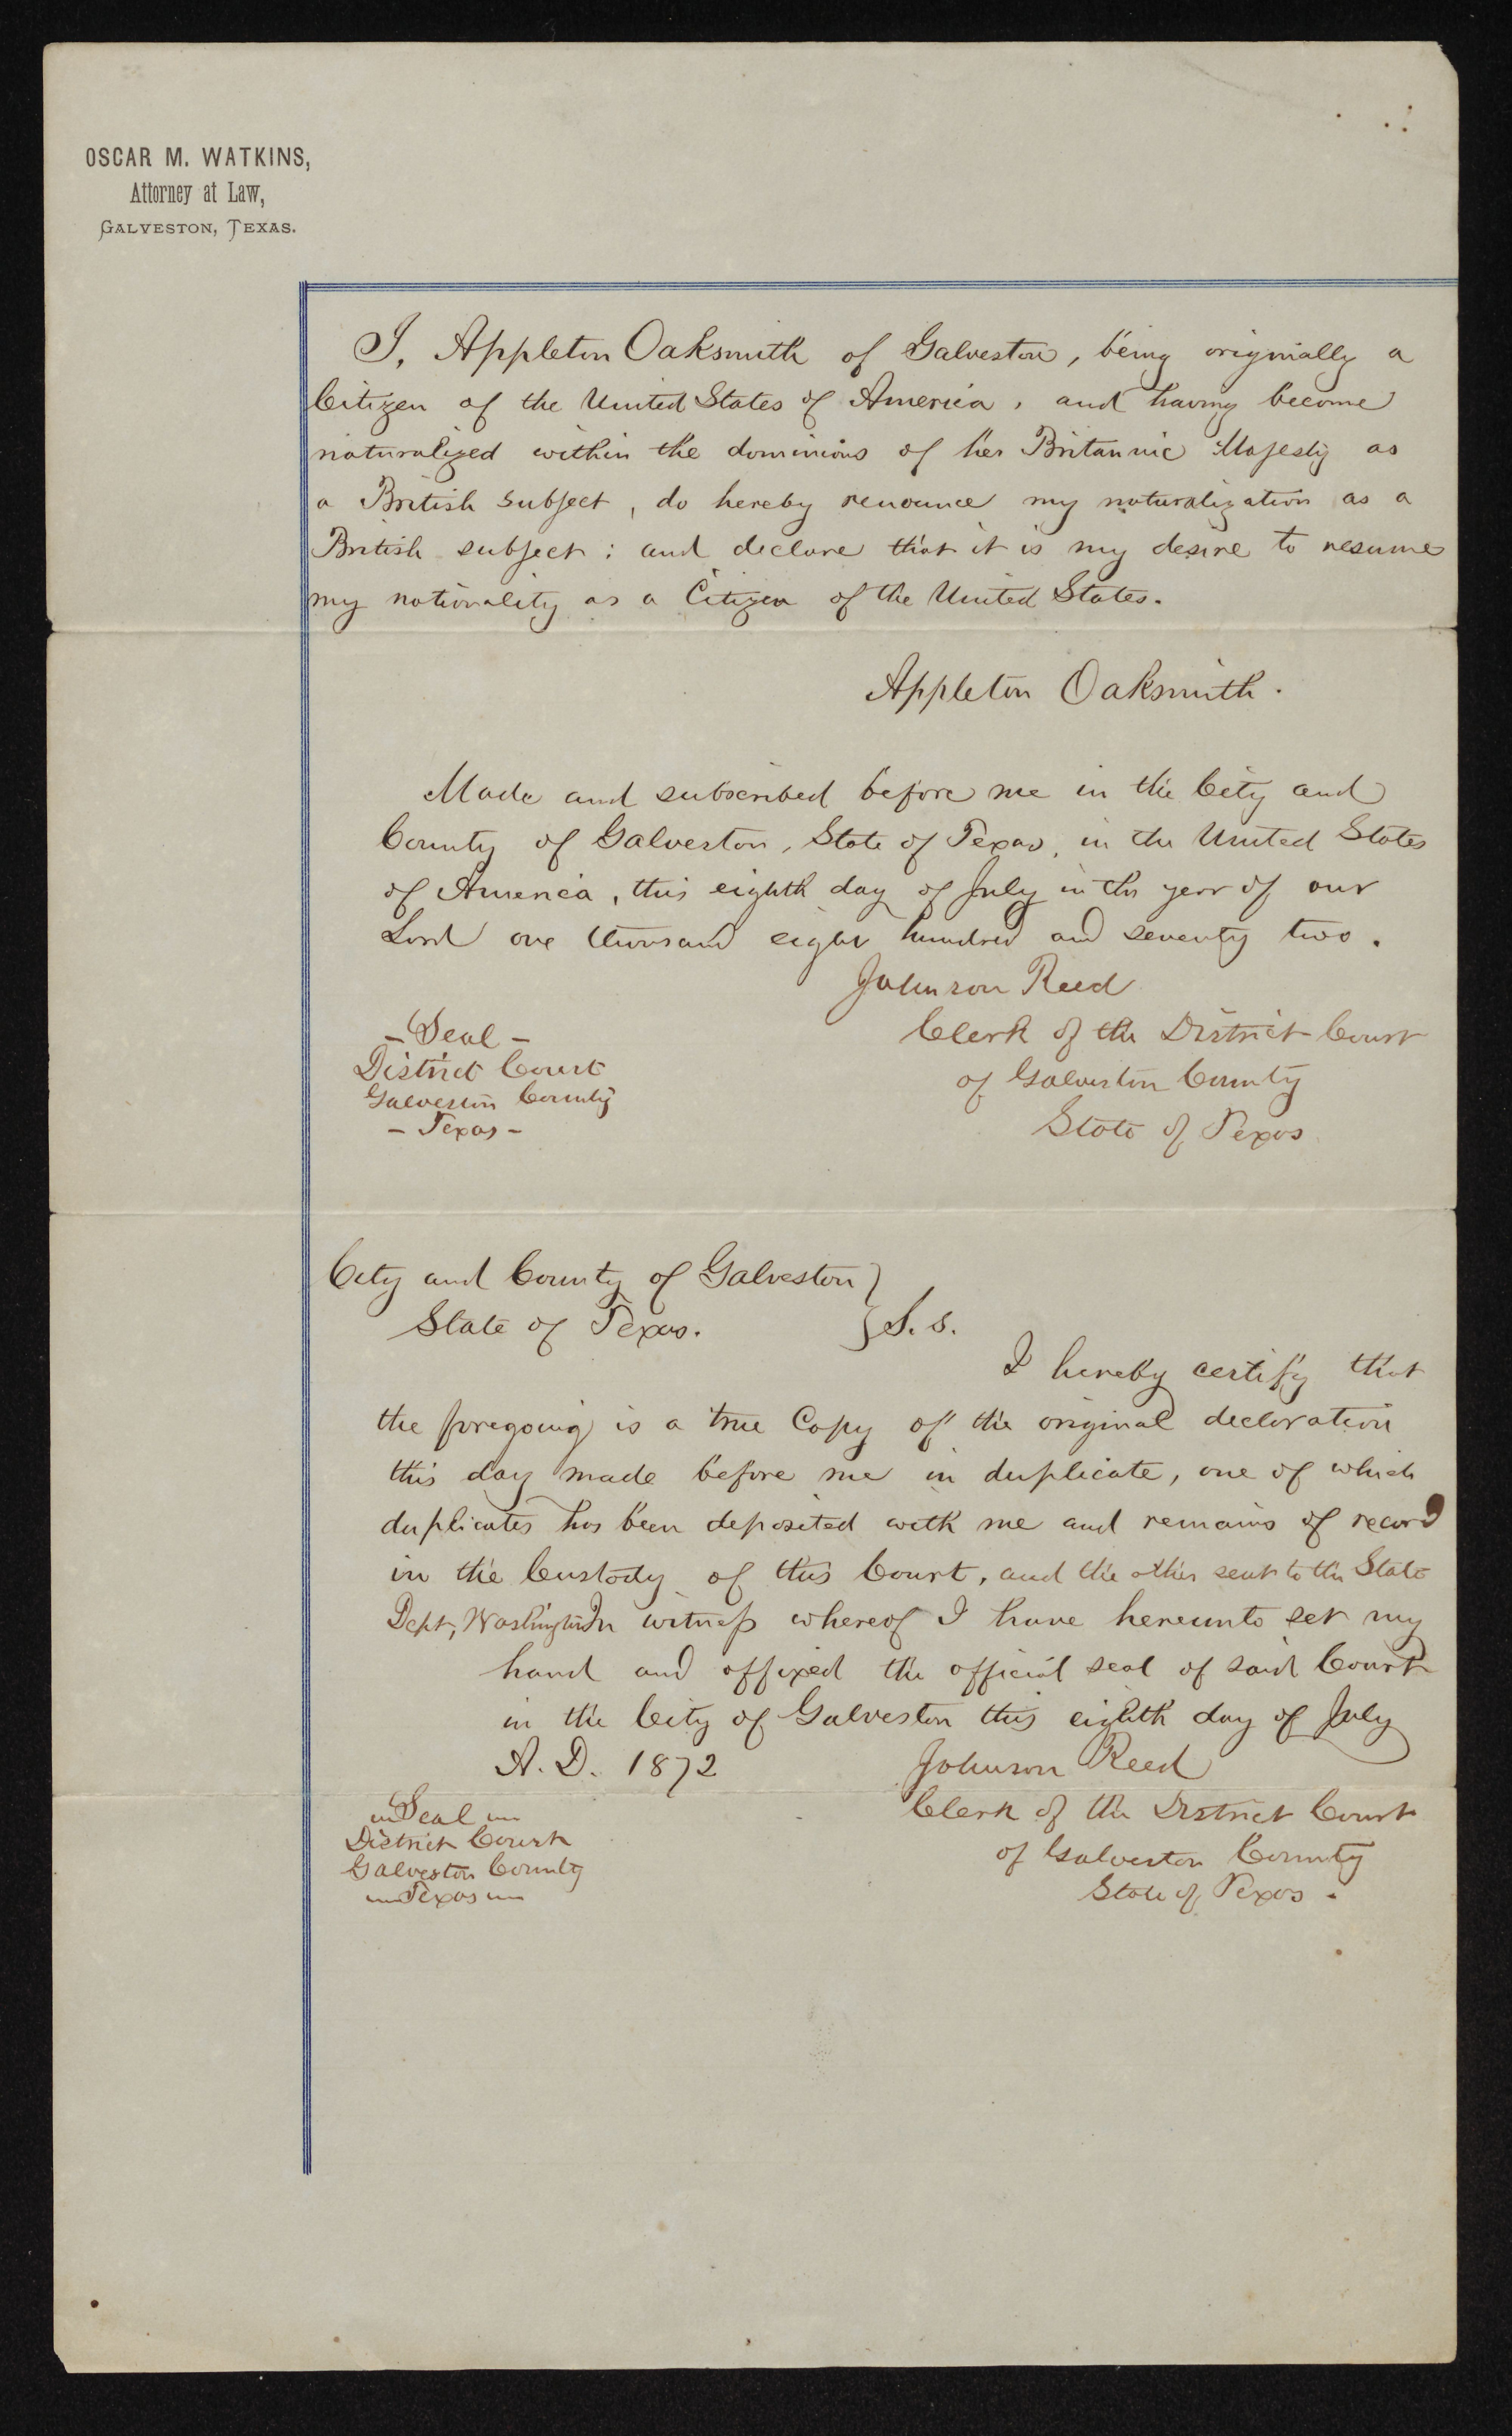 OSCAR M. WATKINS,
Attorney at Law,
GALVESTON, TEXAS.
I, Appleton Oaksmith of Galveston, being originally a
Citizen of the United States of America, and having become
naturalized within the dominions of her Britannic Majesty as
a British subject, do hereby renounce my naturalization as a
British subject; and declare that it is my desire to resume
my nationality as a Citizen of the United States.
Appleton Oaksmith.
Made and subscribed before me in the City and
County of Galveston, State of Texas, in the United States
of America, this eighth day of July in the year of our
Lord one thousand eight hundred and seventy two.
Johnson Reed
Clerk of the District Court
of Galveston County
State of Texas
- Seal -
District Court
Galveston County
- Texas -
City and County of Galveston }
State of Texas. } S. s.
I hereby certify that
the foregoing is a true Copy of the original declaration
this day made before me in duplicate, one of which
duplicates has been deposited with me and remains of record
in the Custody of this Court, and the other sent to the State
Dept, Washington In witness whereof I have hereunto set my
hand and affixed the official seal of said Court
in the City of Galveston this eighth day of July
A. D. 1872
Johnson Reed
Clerk of the District Court
of Galveston County
State of Texas.
Seal
District Court
Galveston County
Texas